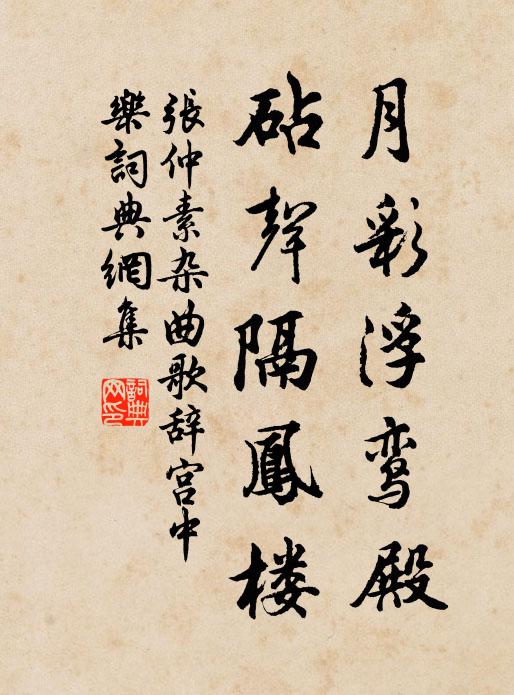 月彩浮鸾殿
砧聲隔鳳楼
張仲素杂曲歌辞宫中
樂詞典網集
詞典
网印